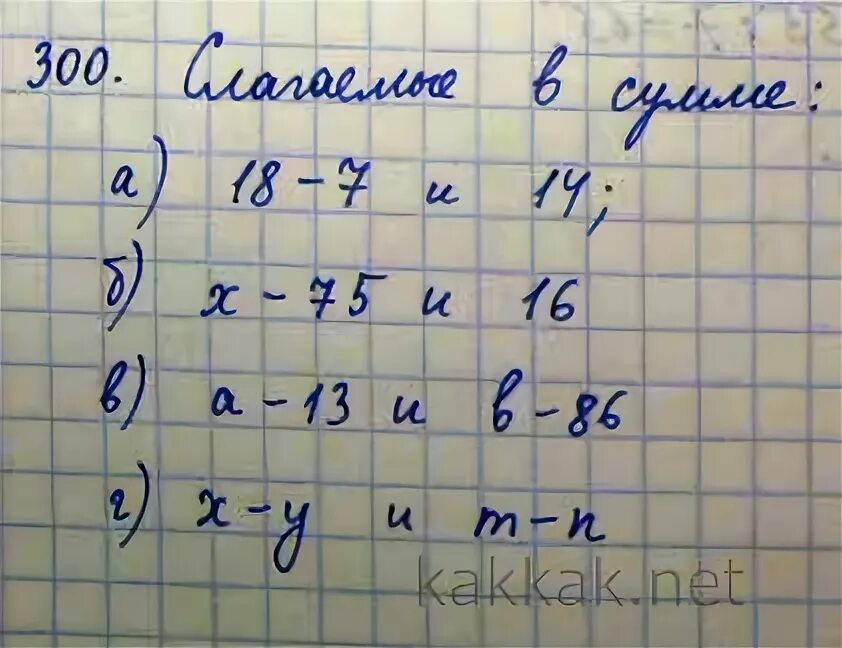 300. Слагаемые в сумме:
а) 18 - 7 и 14;
б) x - 75 и 16
в) a - 13 и в - 86
г) x - y и m - n
kakkak.net